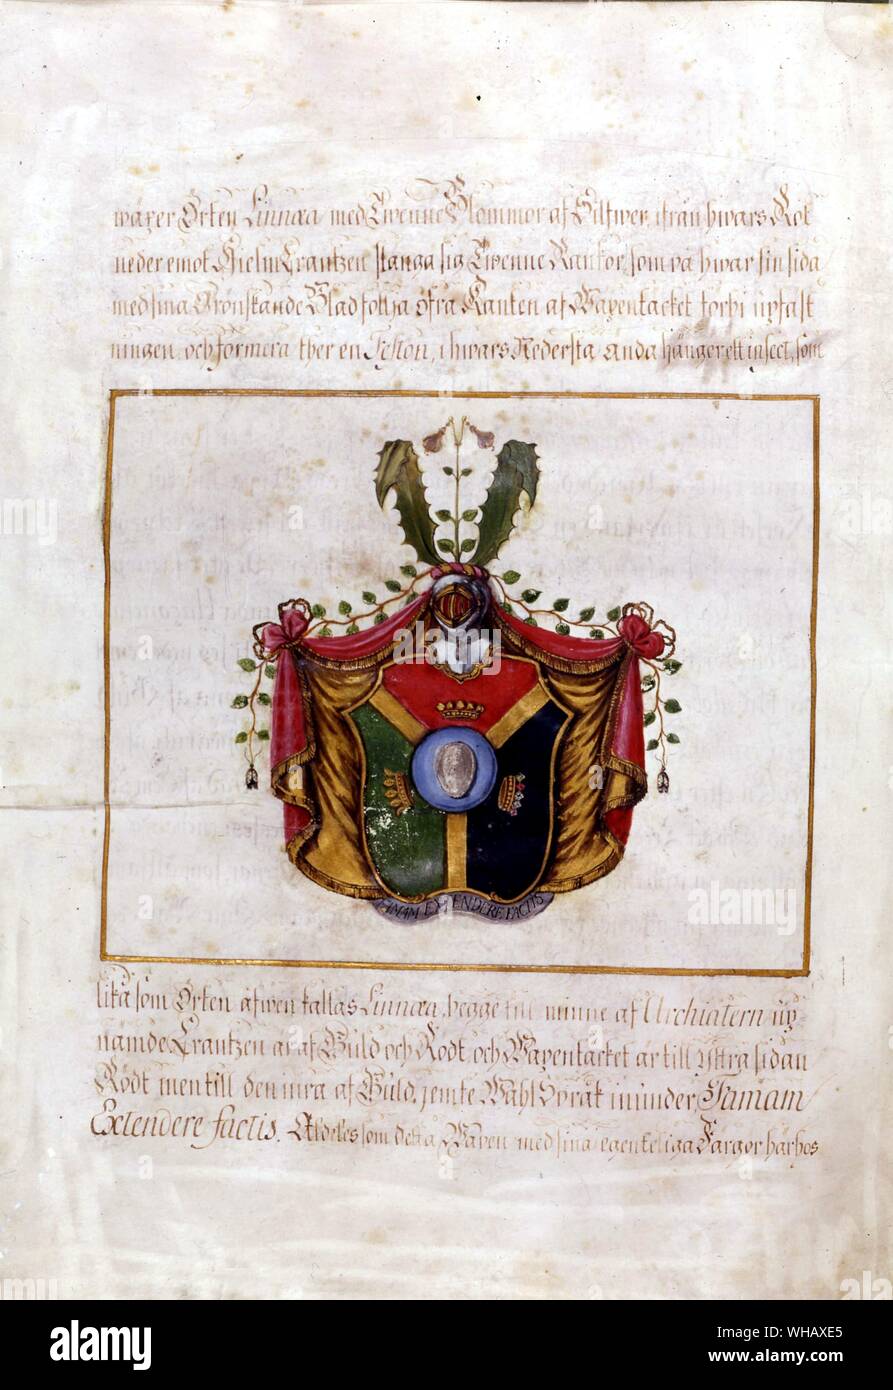 wäxer Örten Linnæa med Twenne Blommor af Silfwer, ifrån hwars Rot
neder emot Hielm Crantzen slänga sig Twenne Rankor, som på hwar sin sida
med sina Grönskande Blad följa öfra Kanten af Wapentäcket förbi upfäst
ningen, och formera ther en Feston, i hwars Nedersta ända hänger ett insect, som
FAMAM EXTENDERE FACTIS
lika som Örten äfwen kallas Linnæa, begge till minne af Archiatern up
nämde Crantzen är af Guld och Rödt, och Wapentäcket är till yttra sidan
Rödt men till den inra af Guld, jemte Wahl Språk inunder, Famam
Extendere factis. Aldeles som detta Wapen med sina egenteliga Färgor härhos
alamy
Image ID: WHAXE5
www.alamy.com